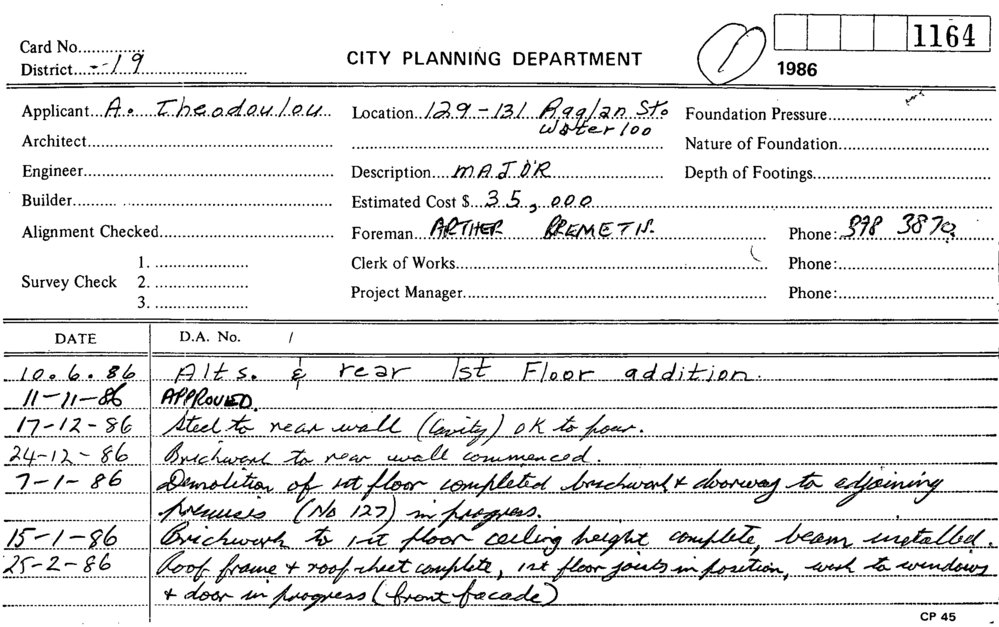 Card No...............
District...--19........................
CITY PLANNING DEPARTMENT
1
1164
1986
Applicant...A. Theodoulou...
Location...129-131 Raglan St.
Waterloo
Foundation Pressure...............................
Architect..............................................
Nature of Foundation............................
Engineer...............................................
Description....MAJOR
Depth of Footings................................
Builder.................................................
Estimated Cost $...35,000
Alignment Checked.................................
Foreman...ARTHER BREMETIS.
Phone:.398 3870
Survey Check
1. .....................
2. .....................
3. .....................
Clerk of Works......................................
Phone:............................
Project Manager....................................
Phone:............................
DATE D.A. No. /
10.6.86 Alts. & rear 1st Floor addition.
11-11-86 APPROVED.
17-12-86 Steel to rear wall (Cavity) OK to pour.
24-12-86 Brickwork to rear wall commenced.
7-1-86 Demolition of 1st floor completed brickwork & doorway to adjoining
premises (No 127) in progress.
15-1-86 Brickwork to 1st floor ceiling height complete, beam installed.
25-2-86 Roof frame + roof sheet complete, 1st floor joists in position, work to windows
+ door in progress (front facade)
CP 45